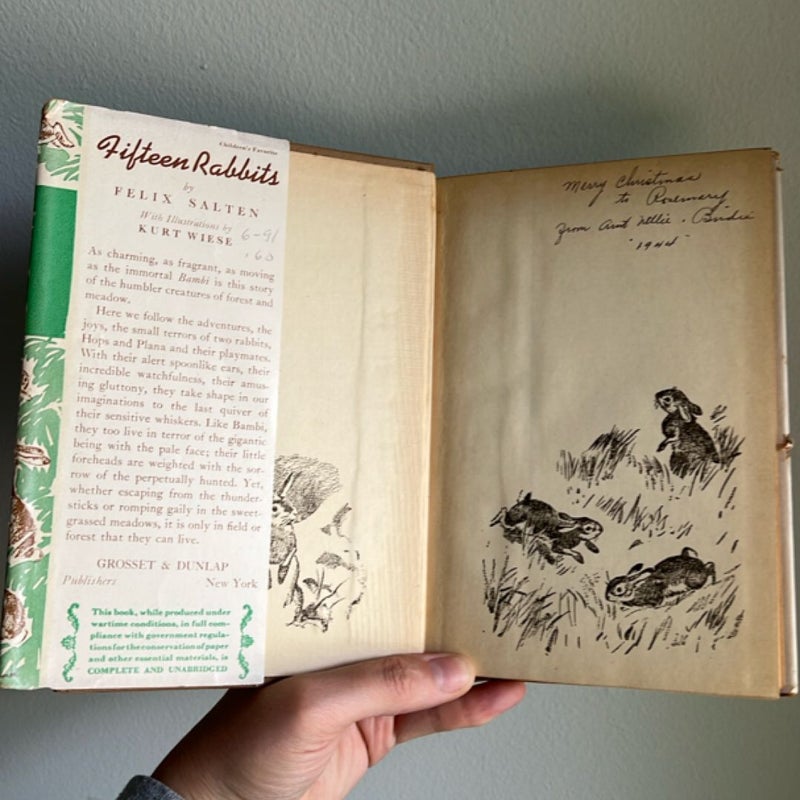 Children's Favorite
Fifteen Rabbits
by
FELIX SALTEN
With Illustrations by
KURT WIESE
6-91
.60
As charming, as fragrant, as moving
as the immortal Bambi is this story
of the humbler creatures of forest and
meadow.
Here we follow the adventures, the
joys, the small terrors of two rabbits,
Hops and Plana and their playmates.
With their alert spoonlike ears, their
incredible watchfulness, their amus-
ing gluttony, they take shape in our
imaginations to the last quiver of
their sensitive whiskers. Like Bambi,
they too live in terror of the gigantic
being with the pale face; their little
foreheads are weighted with the sor-
row of the perpetually hunted. Yet,
whether escaping from the thunder-
sticks or romping gaily in the sweet-
grassed meadows, it is only in field or
forest that they can live.
GROSSET & DUNLAP
Publishers New York
This book, while produced under
wartime conditions, in full com-
pliance with government regula-
tions for the conservation of paper
and other essential materials, is
COMPLETE AND UNABRIDGED
Merry Christmas
to Rosemary
from Aunt Nellie & Birdie
"1944"